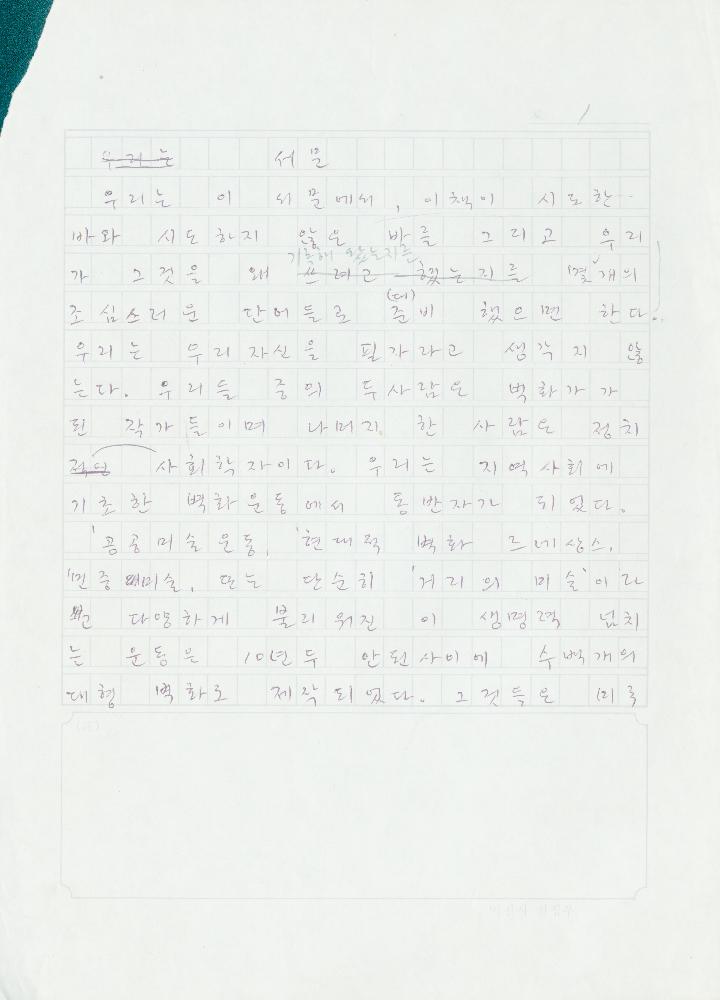 1
우리는 서문
우리는 이 서문에서, 이책이 시도한
바와 시도하지 않은 바를 그리고 우리
기록해 왔는지를
가 그것을 왜 쓰려고 했는지를 몇개의
(대)
조심스러운 단어들로 준비 했으면 한다.
우리는 우리자신을 필자라고 생각지 않
는다. 우리들 중의 두사람은 벽화가가
된 작가들이며 나머지 한 사람은 정치
적인 사회학자이다. 우리는 지역사회에
기초한 벽화운동에서 동반자가 되었다.
'공공미술운동, '현대적 벽화 르네상스,
'민중미술, 또는 단순히 '거리의 미술'이라
고 다양하게 불리워진 이 생명력 넘치
는 운동은 10년두 안된사이에 수백개의
대형 벽화로 제작되었다. 그것들은 미국